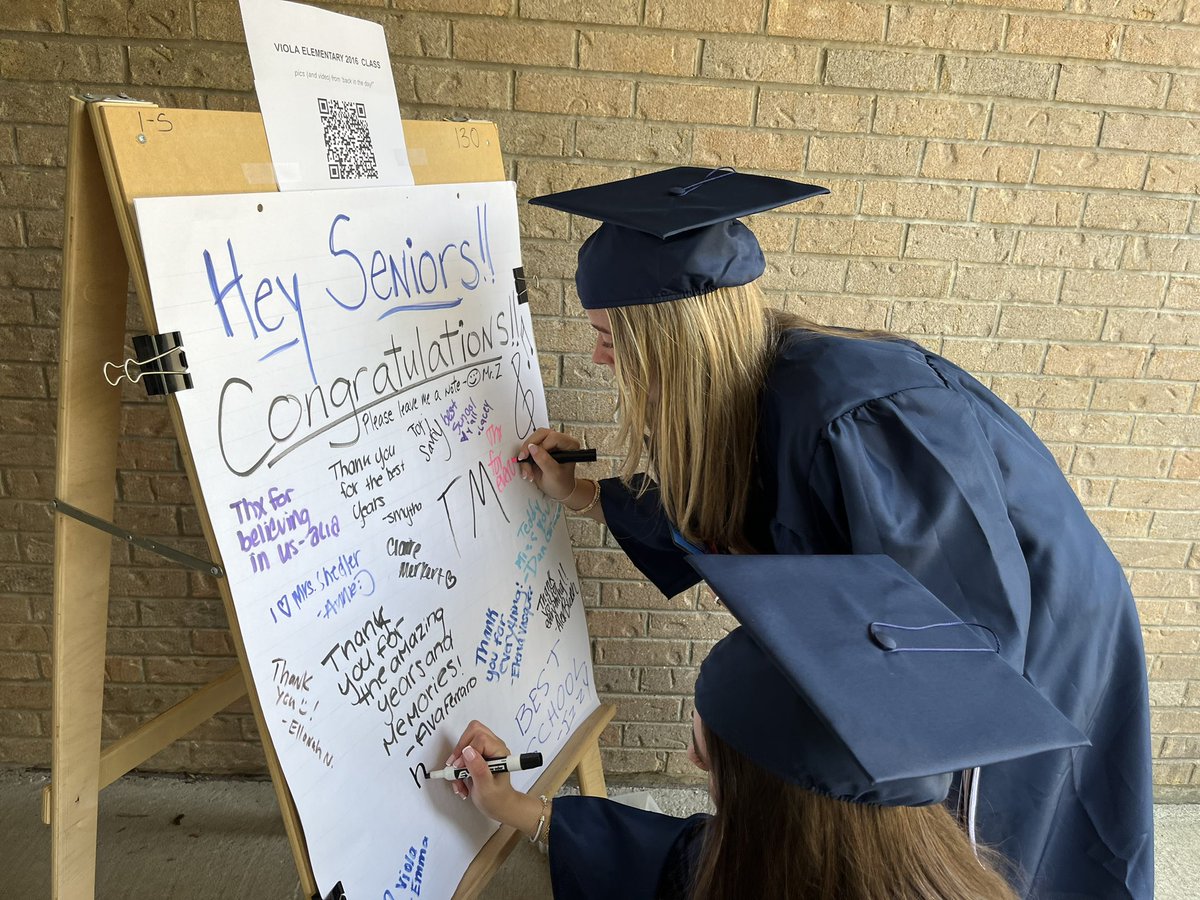 VIOLA ELEMENTARY 2016 CLASS
pics (and video) from "back in the day!"
1-S
130
Hey Seniors!!
Congratulations!!
Please leave me a note - Mr. Z
Thank you
for the best
years
-Smytho
best
Lacey
TM
Thx
for
Thx for
believing
in us - alia
Claire
Markart
I ♡ Mrs. Shedler
-Annie :)
Teddy
Miss
Dan
Thank
you for
everything!
-Elena
Thank
you for
the amazing
years and
memories!
-Ava Ferraro
Thank
you !
-Ellonah N.
BEST
SCHOOL
-IZZY
n
♡ Viola
Emma